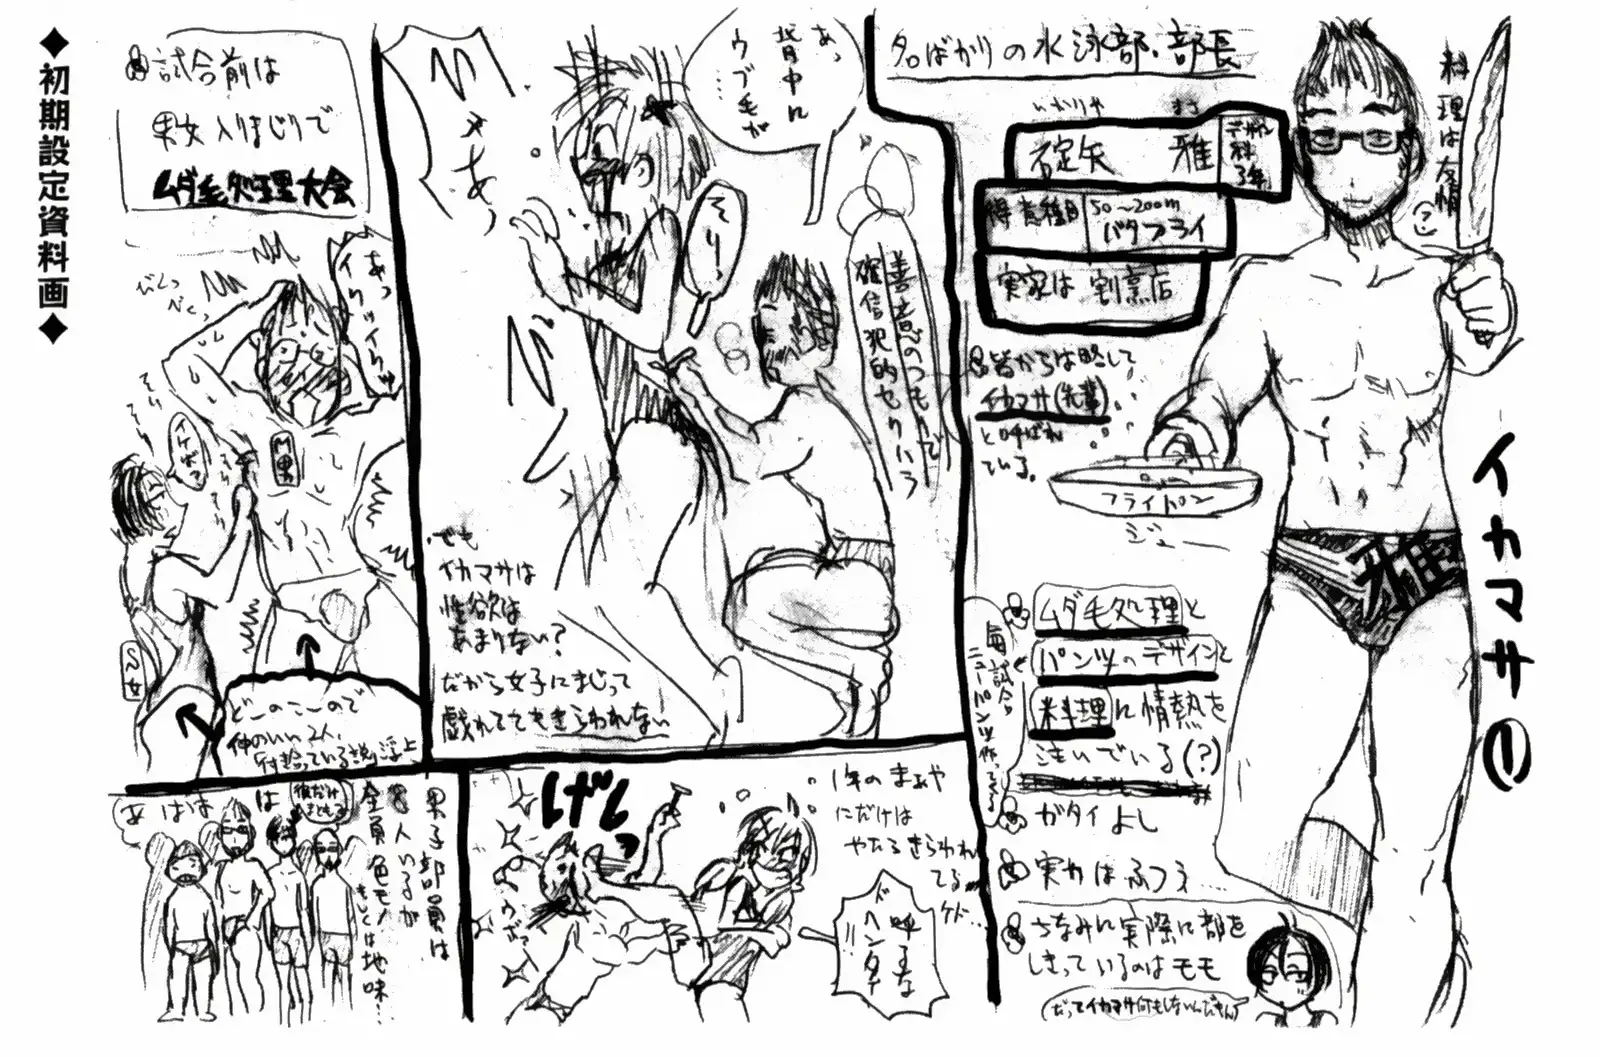 ◆初期設定資料画◆
名ばかりの水泳部・部長
いかりや まさ
碇矢 雅
デザイン科3年
得意種目
50〜200m
バタフライ
実家は割烹店
皆からは略して
イカマサ(先輩)
と呼ばれ
ている。
料理は友情
イカマサ①
フライパン
ジュー
雅
ムダ毛処理と
パンツのデザインと
料理に情熱を
注いでいる(?)
毎試合
ニューパンツ作ってくる
ガタイよし
実力はふつう…
ちなみに実際に部を
しきっているのはモモ
(だってイカマサ何もしないんだもん)
あっ
背中に
ウブ毛が
…
そりっ
善意のつもりで
確信犯的セクハラ
でも
イカマサは
性欲は
あまりない?
だから女子にまじって
戯れててもきらわれない
試合前は
男女入りまじりで
ムダ毛処理大会
あっ
イクッイクッ
びくっ
びくっ
そり
そり
M男
S女
どーのこーので
仲のいい2人、
付き合っている説浮上
男子部員は
8人いるが
全員色モノ
もしくは地味…
彼だけ
まとも
あはは
は
げしっ
1年のまあや
にだけは
やたらきらわれ
てる
ケド…
呼ぶな
ドヘンタイ
!!